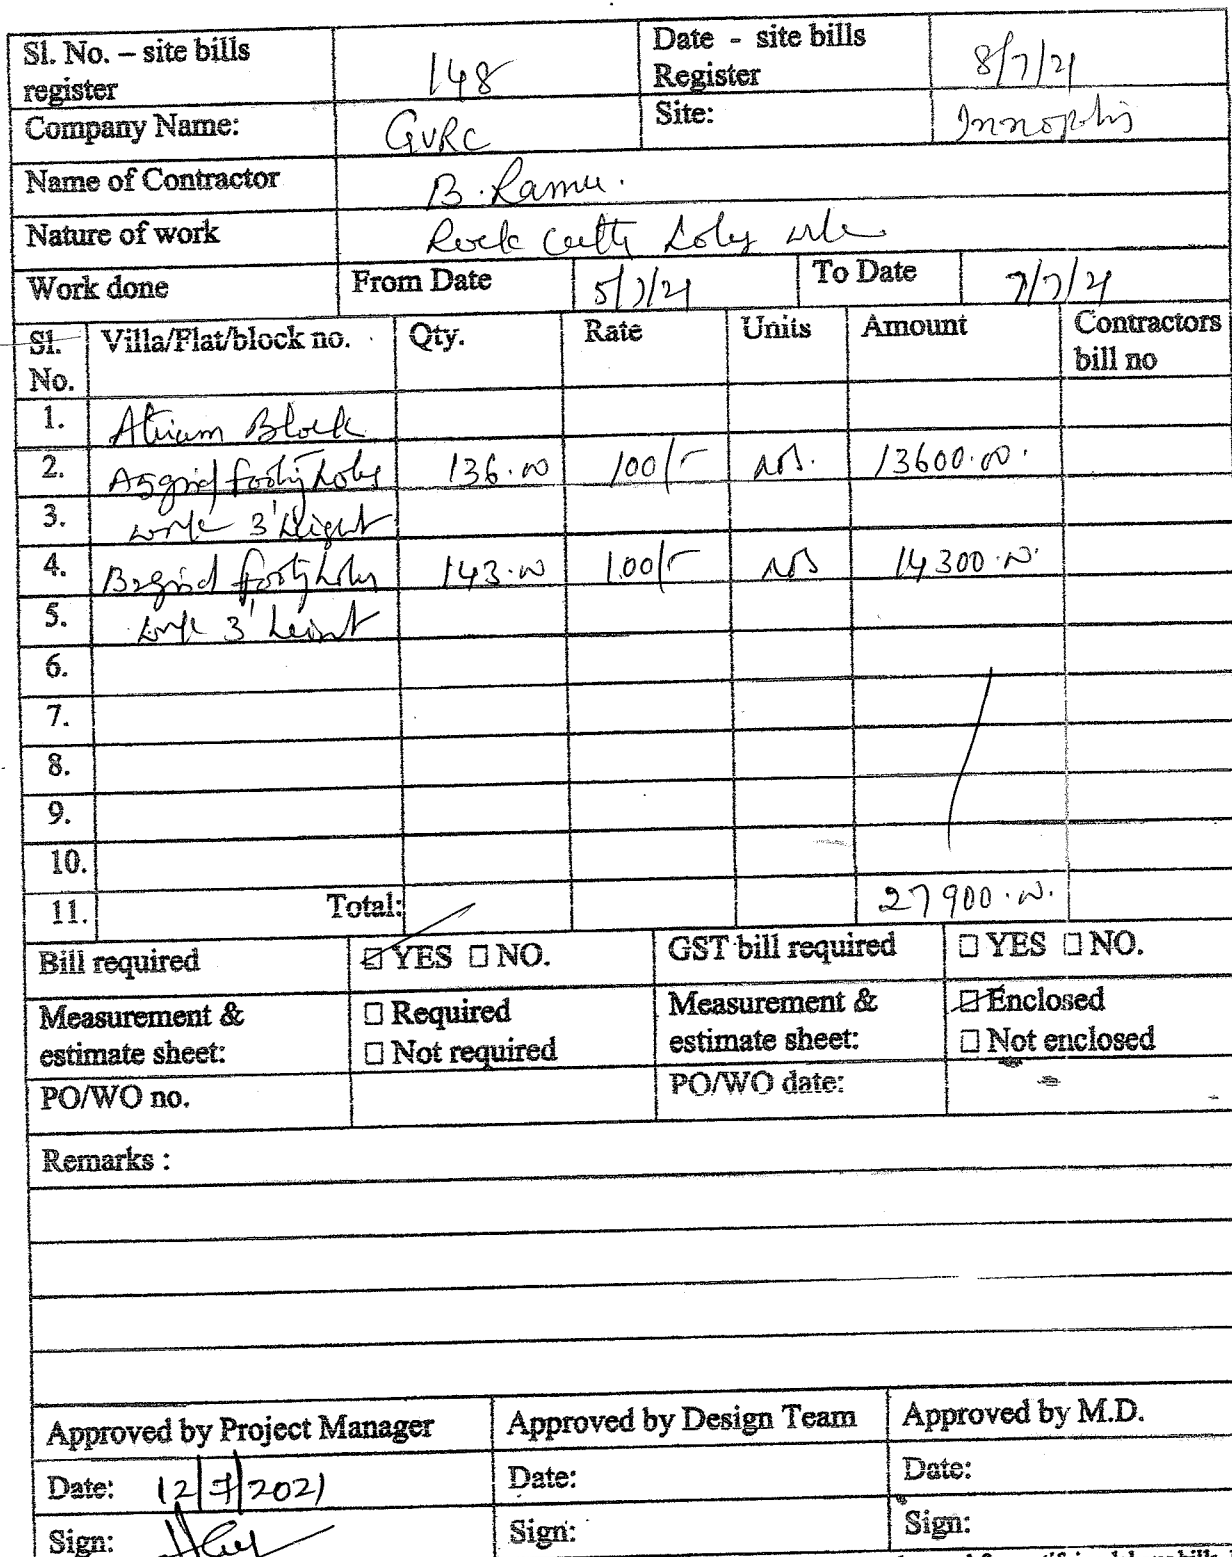 Sl. No. – site bills register 148 Date - site bills Register 8/7/21
Company Name: GVRC Site: Innoplis
Name of Contractor B. Ramu.
Nature of work Rock
Work done From Date 5/7/21 To Date 7/7/21
Sl. No. Villa/Flat/block no. Qty. Rate Units Amount Contractors bill no
1. Atrium Block
2. 136.00 100/- nos. 13600.00.
3. work 3' height
4. 143.00 100/- nos 14300.00.
5. work 3'
6.
7.
8.
9.
10.
11. Total: 27900.00.
Bill required ☑ YES ☐ NO. GST bill required ☐ YES ☐ NO.
Measurement & estimate sheet: ☐ Required ☐ Not required Measurement & estimate sheet: ☑ Enclosed ☐ Not enclosed
PO/WO no. PO/WO date:
Remarks :
Approved by Project Manager Approved by Design Team Approved by M.D.
Date: 12/7/2021 Date: Date:
Sign: Sign: Sign: